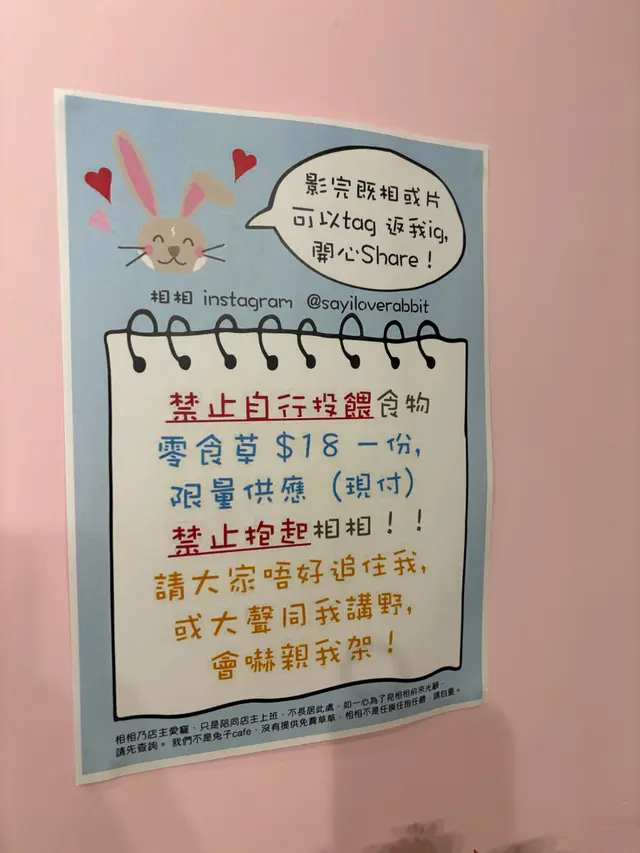 影完既相或片
可以tag 返我ig,
開心Share！
相相 instagram @sayiloverabbit
禁止自行投餵食物
零食草 $18 一份,
限量供應（現付）
禁止抱起相相！！
請大家唔好追住我,
或大聲同我講野,
會嚇親我架！
相相乃店主愛寵，只是陪同店主上班，不長居此處，如一心為了見相相前來光顧，
請先查詢。我們不是兔子cafe，沒有提供免費草草，相相不是任摸任抱任餵，請自重。